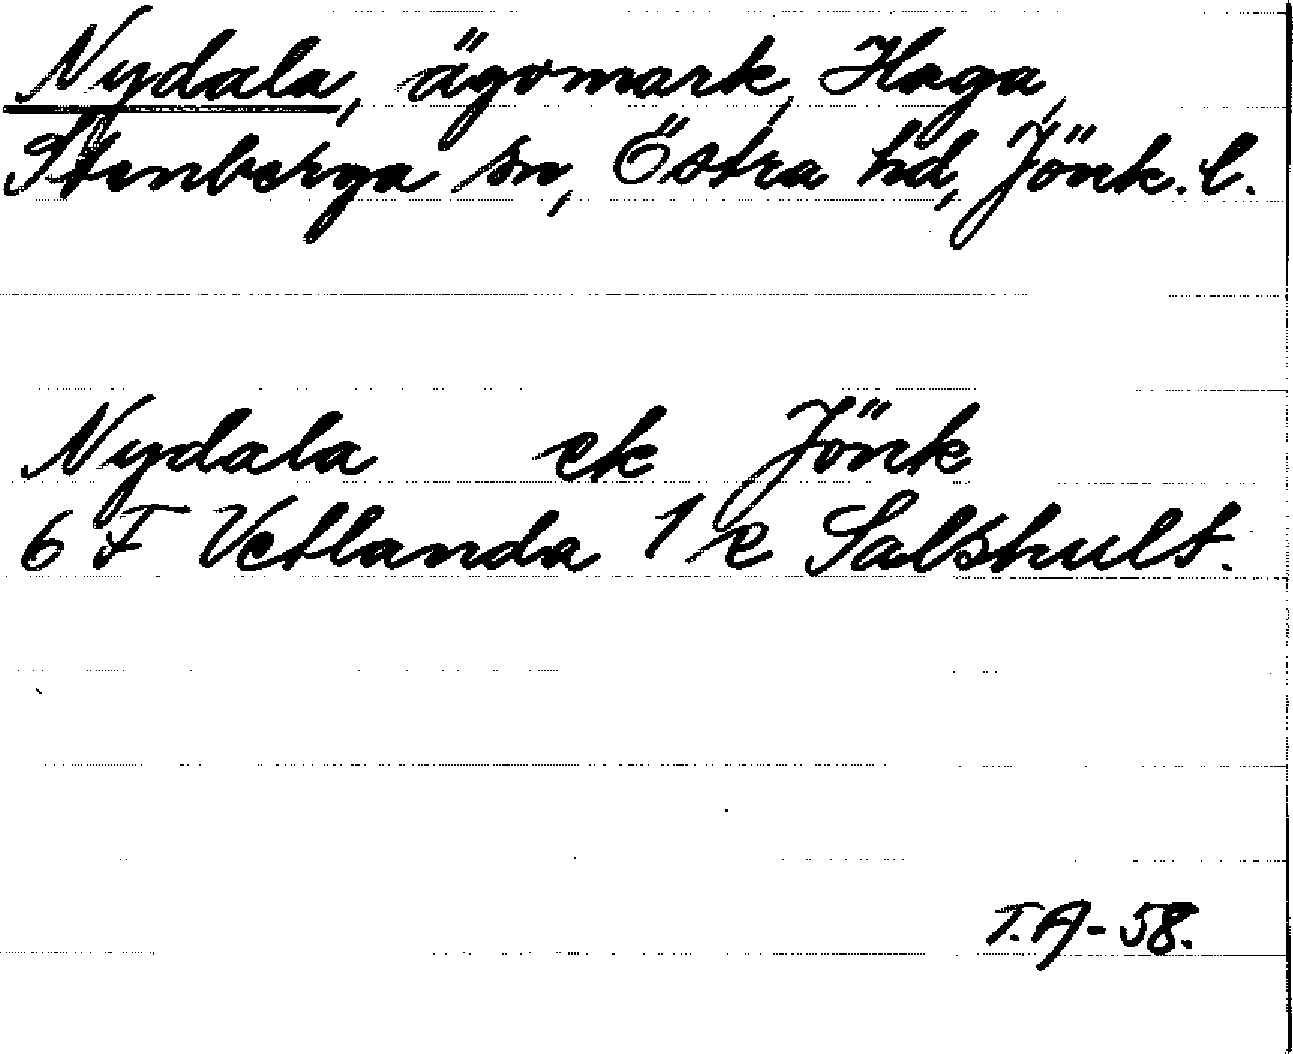 Nydala, ägomark, Haga,
Stenberga sn, Östra hd, Jönk. l.
Nydala ek Jönk
6 F Vetlanda 1 e Salshult.
T.A-58.